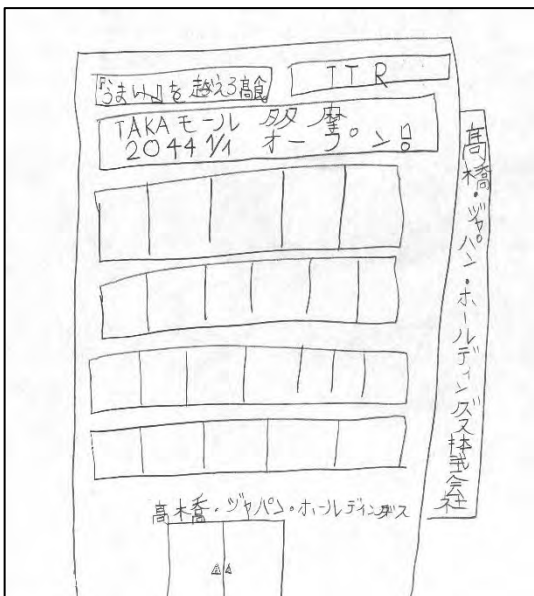 『うまい』を越える高食
TTR
TAKAモール 多摩
2044 1/1 オープン!!
髙橋・ジャパン・ホールディングス株式会社
高橋・ジャパン・ホールディングス